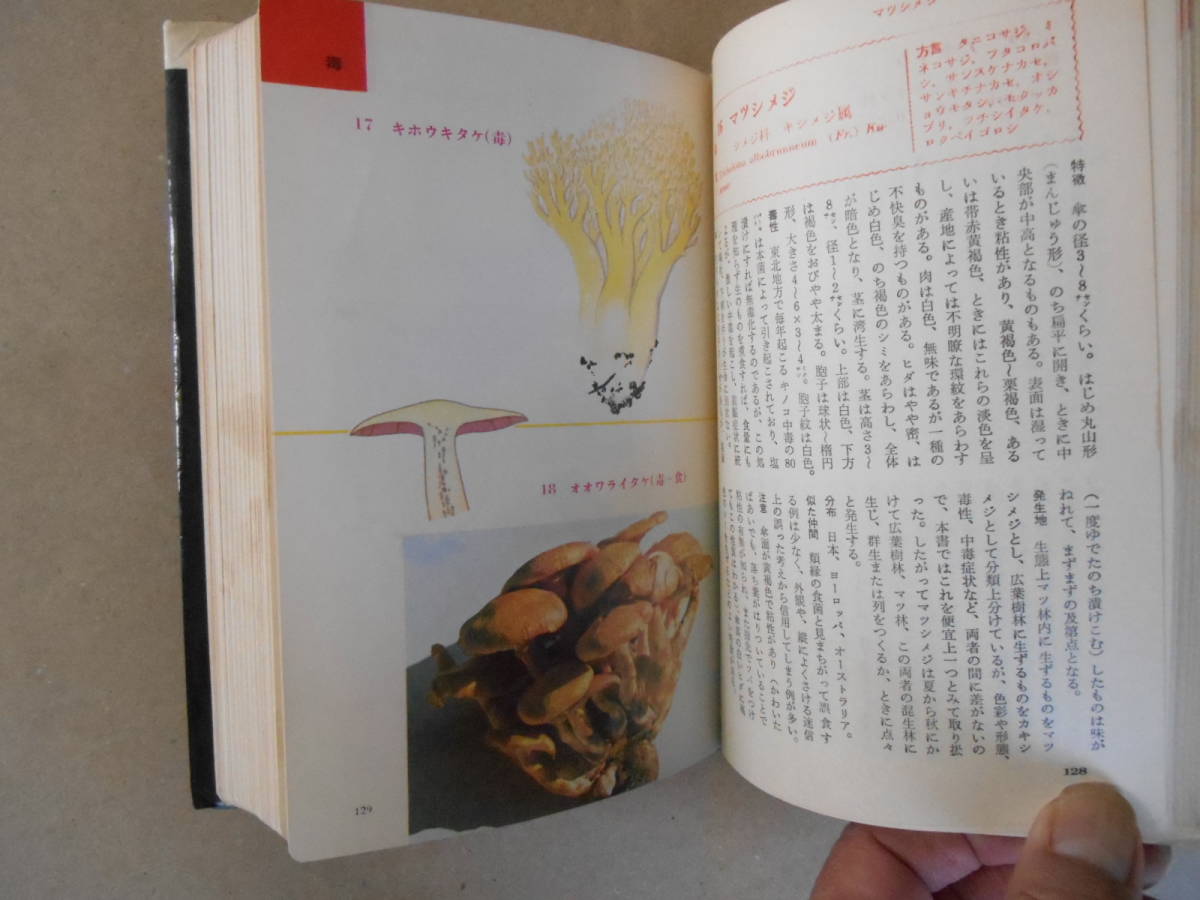 マツシメジ
方言 タニコサジ、ミ
ネコサジ、フタコロバ
シ、サンスケナカセ、
サンキチナカセ、オシ
ョウキタシ、モタッカ
ブリ、ツチシイタケ、
ロクベイゴロシ
マツシメジ
シメジ科 キシメジ属
特徴 傘の径3〜8センチくらい。はじめ丸山形
(まんじゅう形)、のち扁平に開き、ときに中
央部が中高となるものもある。表面は湿って
いるとき粘性があり、黄褐色〜栗褐色、ある
いは帯赤黄褐色、ときにはこれらの淡色を呈
し、産地によっては不明瞭な環紋をあらわす
ものがある。肉は白色、無味であるが一種の
不快臭を持つものがある。ヒダはやや密、は
じめ白色、のち褐色のシミをあらわし、全体
が暗色となり、茎に湾生する。茎は高さ3〜
8センチ、径1〜2センチくらい。上部は白色、下方
は褐色をおびやや太まる。胞子は球状〜楕円
形、大きさ4〜6×3〜4。胞子紋は白色。
毒性 東北地方で毎年起こるキノコ中毒の80
は本菌によって引き起こされており、塩
漬けにすれば無毒化するのであるが、この処
理を知らず生のものを煮食すれば、食量にも
(一度ゆでたのち漬けこむ)したものは味が
ねれて、まずまずの及第点となる。
発生地 生態上マツ林内に生ずるものをマツ
シメジとし、広葉樹林に生ずるものをカキシ
メジとして分類上分けているが、色彩や形態、
毒性、中毒症状など、両者の間に差がないの
で、本書ではこれを便宜上一つとみて取り扱
った。したがってマツシメジは夏から秋にか
けて広葉樹林、マツ林、この両者の混生林に
生じ、群生または列をつくるか、ときに点々
と発生する。
分布 日本、ヨーロッパ、オーストラリア。
似た仲間 類縁の食菌と見まちがって誤食す
る例は少なく、外観や、縦によくさける迷信
上の誤った考えから信用してしまう例が多い。
注意 傘面が黄褐色で粘性があり(かわいた
ばあいでも、落ち葉がはりついていることで
128
毒
17 キホウキタケ(毒)
18 オオワライタケ(毒-食)
129